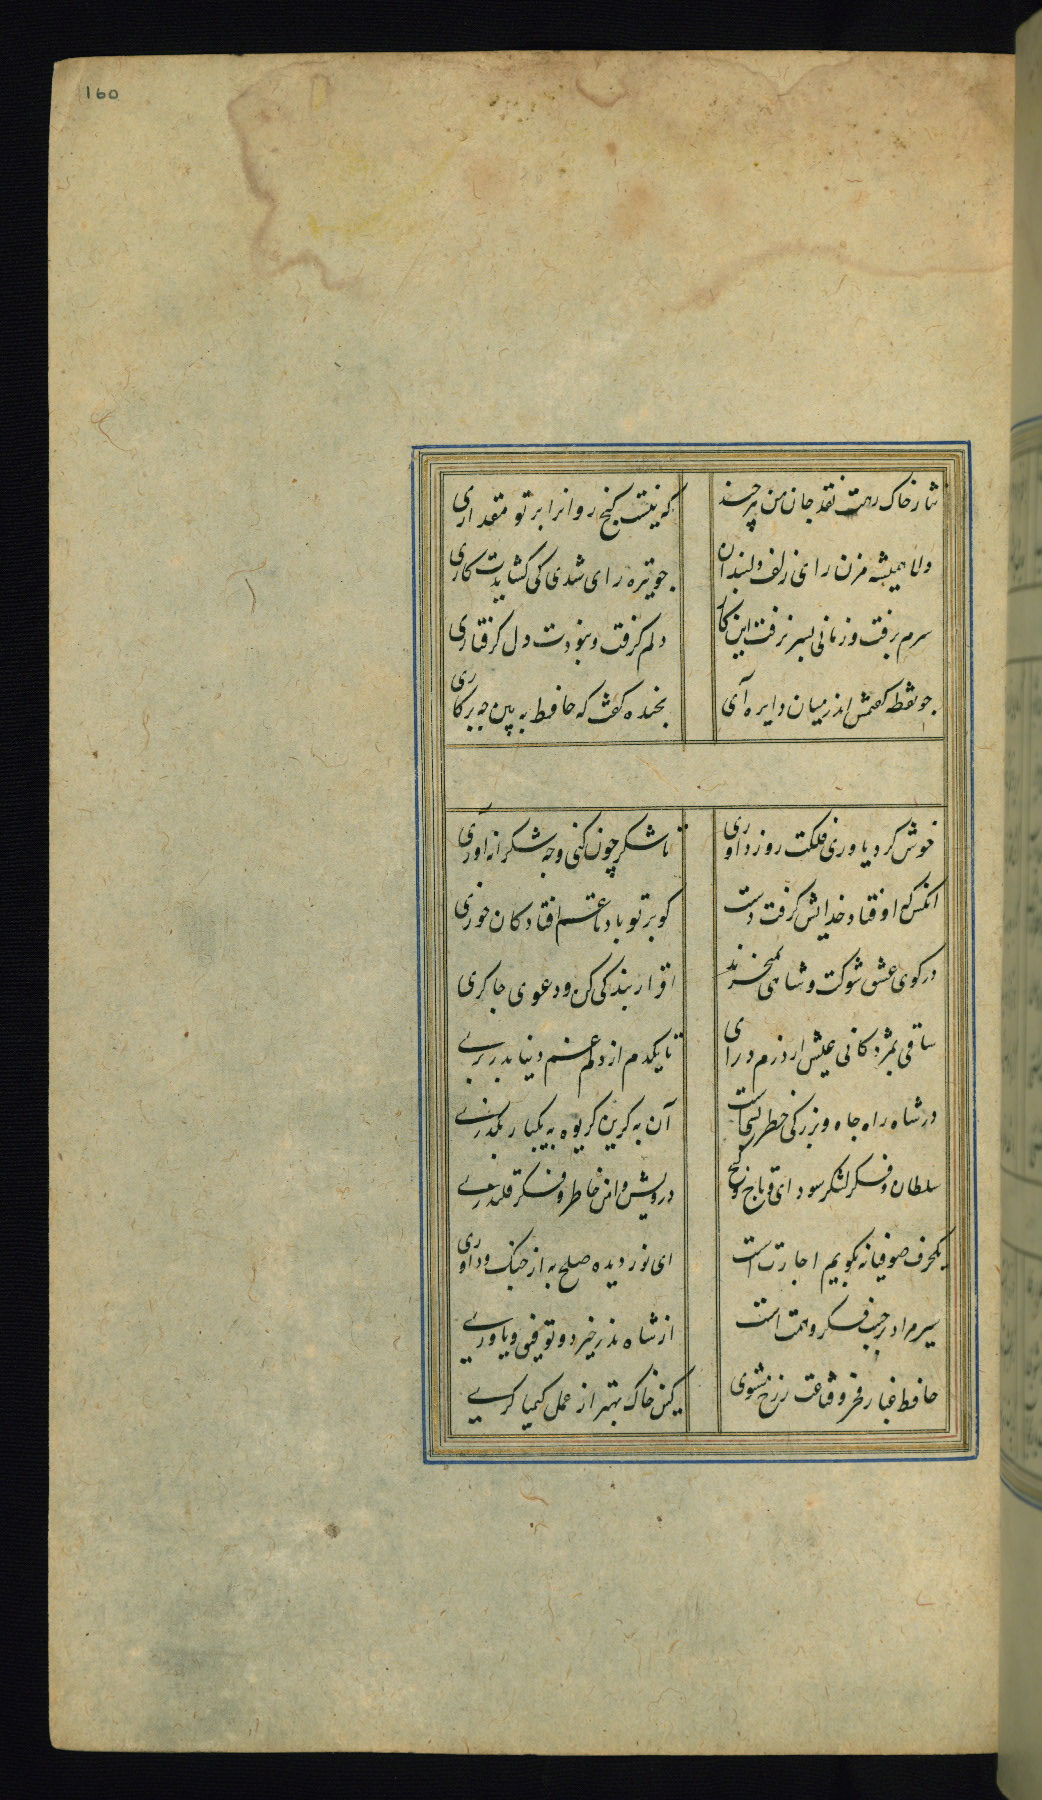 160
نثار خاک رهت نقد جان من هر چند
که نیست گنج روانرا بر تو مقداری
دلا همیشه مزن رای زلف دلبندان
چو تیره رای شدی کی گشایدت کاری
سرم برفت و زمانی بسر نرفت این کار
دلم گرفت و نبودت دل گرفتاری
چو نقطه گفتمش اندر میان دایره آی
بخنده گفت که حافظ به بین چه پرکاری
خوش کرد یاوری فلکت روز داوری
تا شکر چون کنی و چه شکرانه آوری
آنکس که اوفتاد خدایش گرفت دست
گو بر تو باد تا غم افتادگان خوری
در کوی عشق شوکت و شاهی نمیخرند
اقرار بندگی کن و دعوی چاکری
ساقی بمژدگانی عیش از درم درای
تا یکدم از دلم غم دنیا بدر بری
در شاه راه جاه و بزرگی خطر بسیست
آن به کزین گریوه به یکبار بگذری
سلطان و فکر لشکر و سودای تاج و گنج
درویش و امن خاطر و فکر قلندری
یکحرف صوفیانه بگویم اجازتست
ای نور دیده صلح به از جنگ و داوری
سیر مراد بر حسب فکر و همت است
از شاه نذر خیر و توفیق و یاوری
حافظ غبار فقر و قناعت ز رخ مشوی
کین خاک بهتر از عمل کیمیا گری